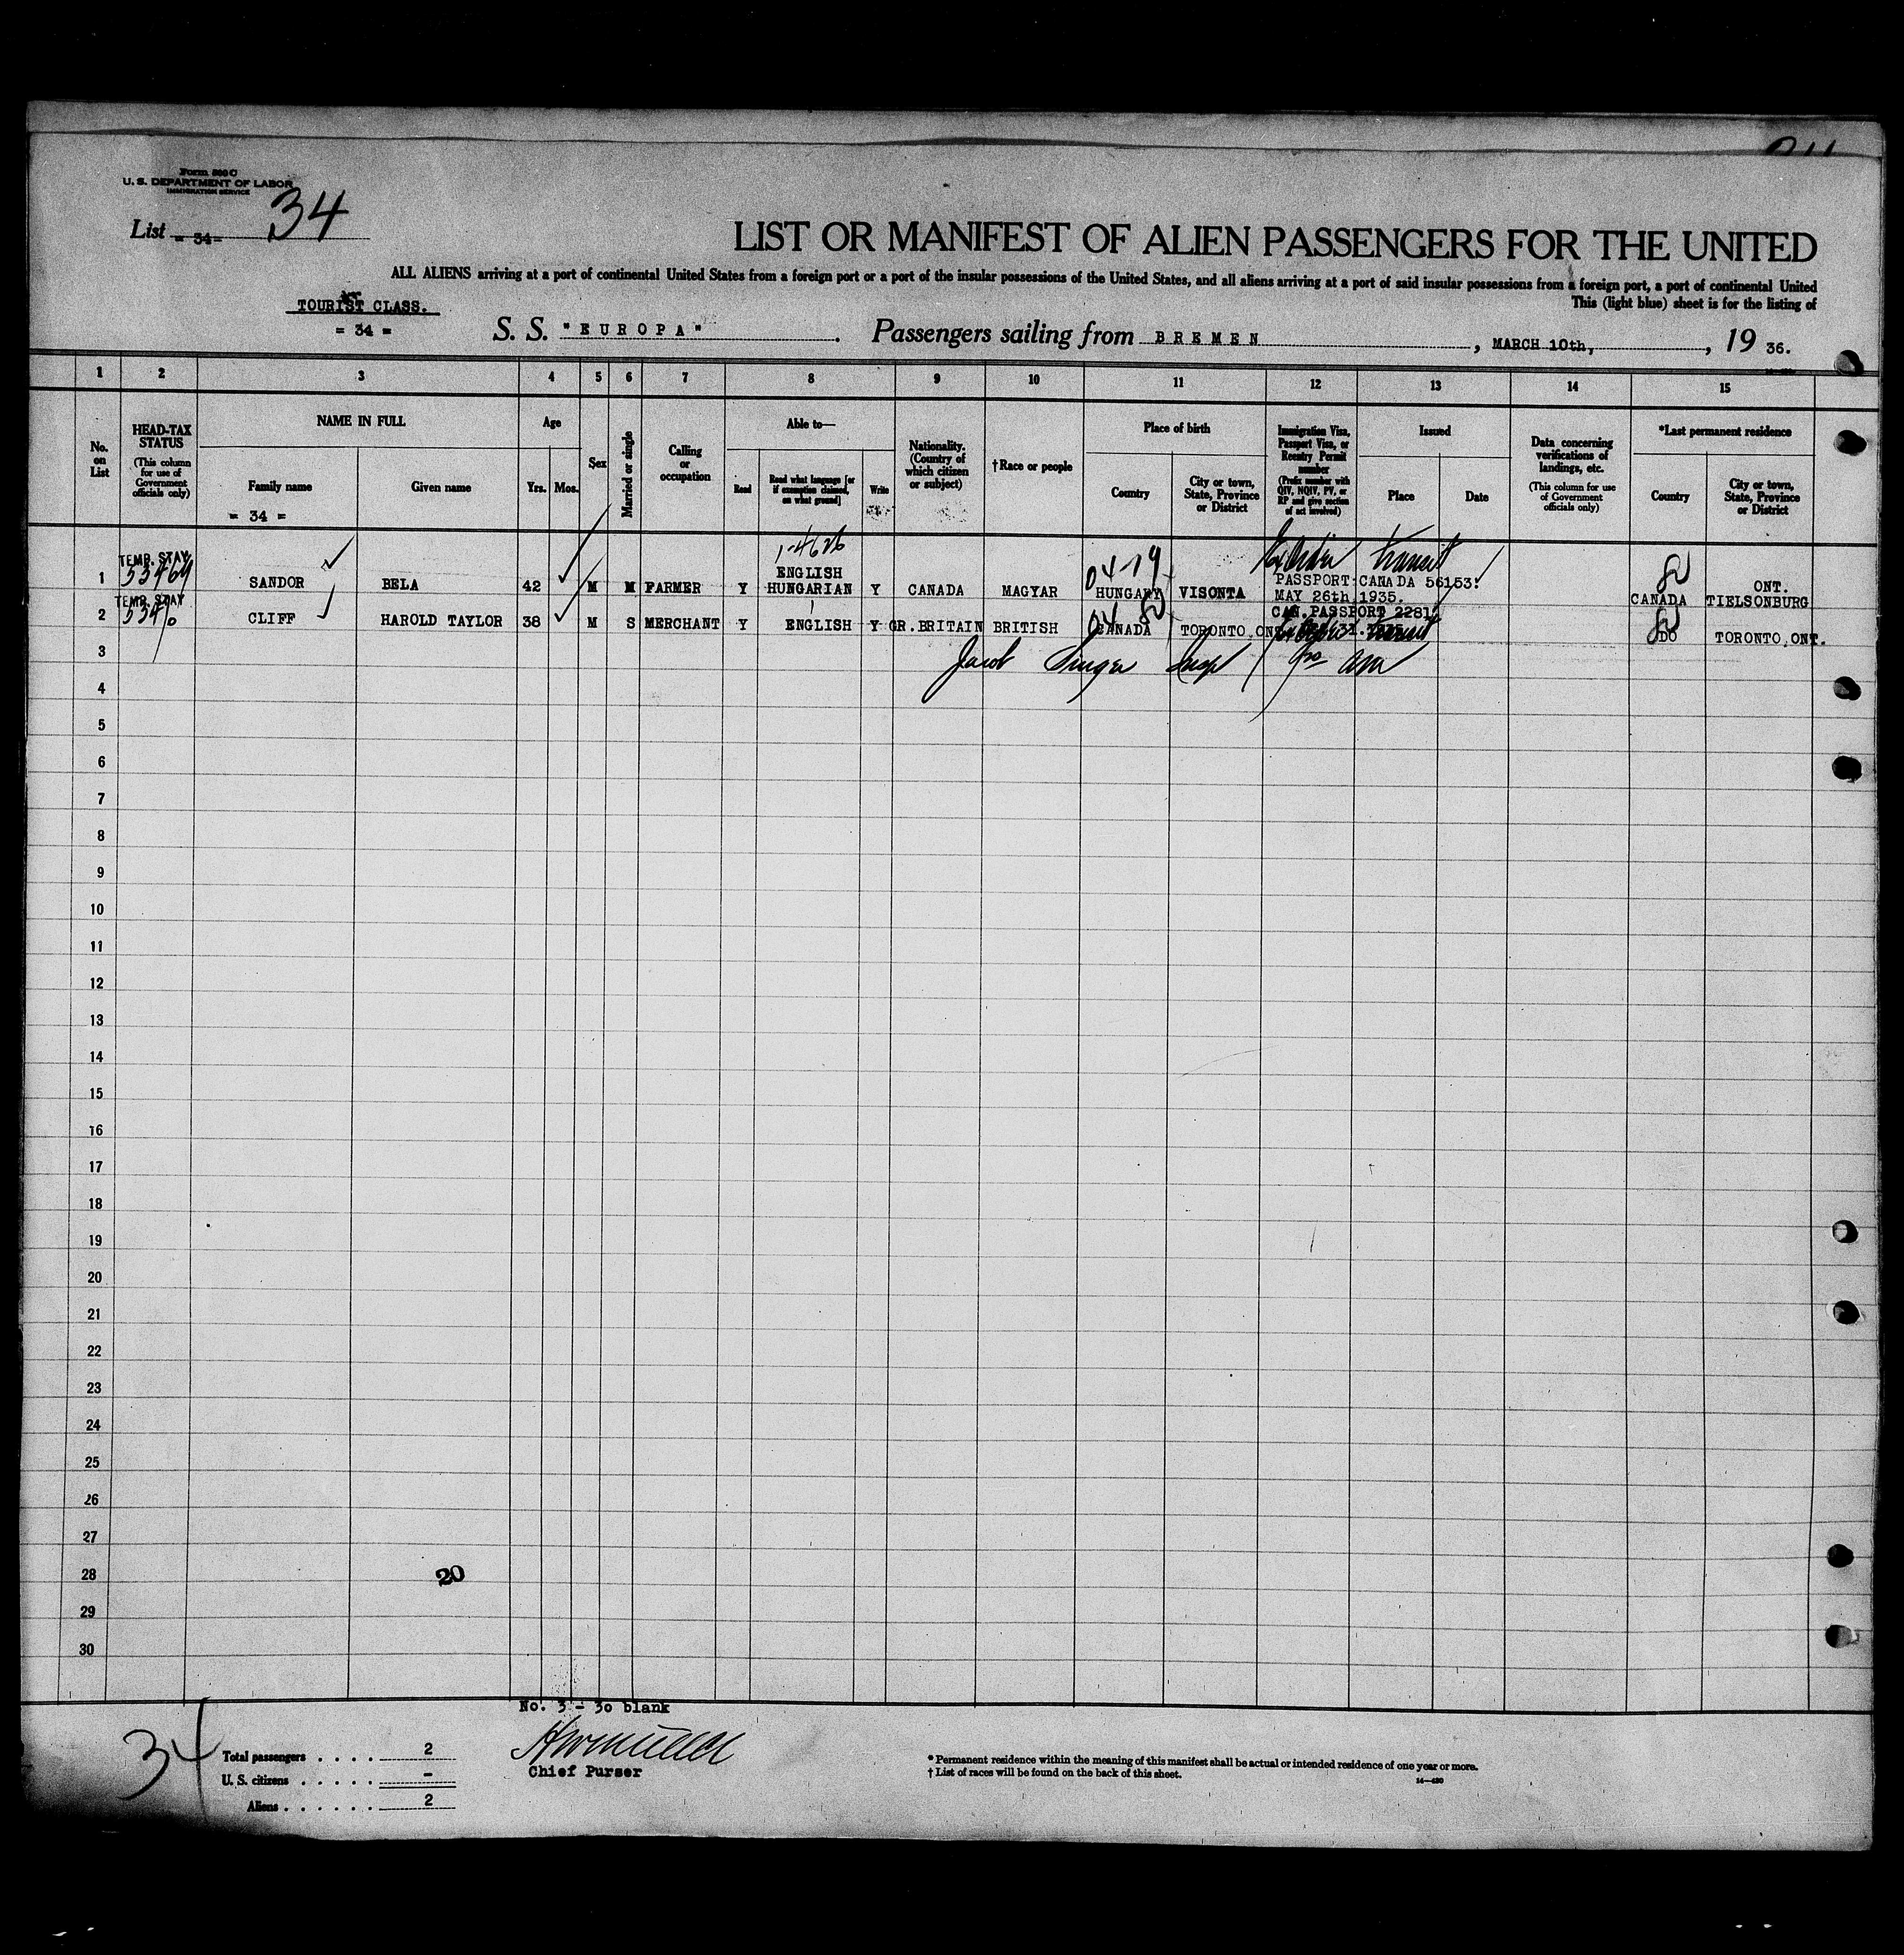 Form 500 C
U. S. DEPARTMENT OF LABOR
IMMIGRATION SERVICE
List = 34= 34
LIST OR MANIFEST OF ALIEN PASSENGERS FOR THE UNITED
ALL ALIENS arriving at a port of continental United States from a foreign port or a port of the insular possessions of the United States, and all aliens arriving at a port of said insular possessions from a foreign port, a port of continental United
This (light blue) sheet is for the listing of
TOURIST CLASS.
= 34 =
S. S. "EUROPA". Passengers sailing from BREMEN, MARCH 10th, , 19 36.
1 2 3 4 5 6 7 8 9 10 11 12 13 14 15
No. on List
HEAD-TAX STATUS
(This column for use of Government officials only)
NAME IN FULL
Family name
Given name
= 34 =
Age
Yrs. Mos.
Sex
Married or single
Calling or occupation
Able to—
Read
Read what language [or if exemption claimed, on what ground]
Write
Nationality. (Country of which citizen or subject)
†Race or people
Place of birth
Country
City or town, State, Province or District
Immigration Visa, Passport Visa, or Reentry Permit number
(Prefix number with QIV, NQIV, PV, or RP and give section of act involved)
Issued
Place
Date
Data concerning verifications of landings, etc.
(This column for use of Government officials only)
*Last permanent residence
Country
City or town, State, Province or District
1-4626
TEMP. STAY ENGLISH 04-19 transit PASSPORT:CANADA 56153. ONT.
1 53469 SANDOR BELA 42 M M FARMER Y HUNGARIAN Y CANADA MAGYAR HUNGARY VISONTA MAY 26th 1935. CANADA TIELSONBURG
TEMP. STAY CAN.PASSPORT 2281
2 53470 CLIFF HAROLD TAYLOR 38 M S MERCHANT Y ENGLISH Y GR.BRITAIN BRITISH 04 CANADA TORONTO ONT. transit DO TORONTO ONT.
3 Jacob Singer Insp
4
5
6
7
8
9
10
11
12
13
14
15
16
17
18
19
20
21
22
23
24
25
26
27
28 20
29
30
No. 3 - 30 blank
34
Total passengers . . . . 2
U. S. citizens . . . . . -
Aliens . . . . . . 2
Chief Purser
* Permanent residence within the meaning of this manifest shall be actual or intended residence of one year or more.
† List of races will be found on the back of this sheet.
14—430